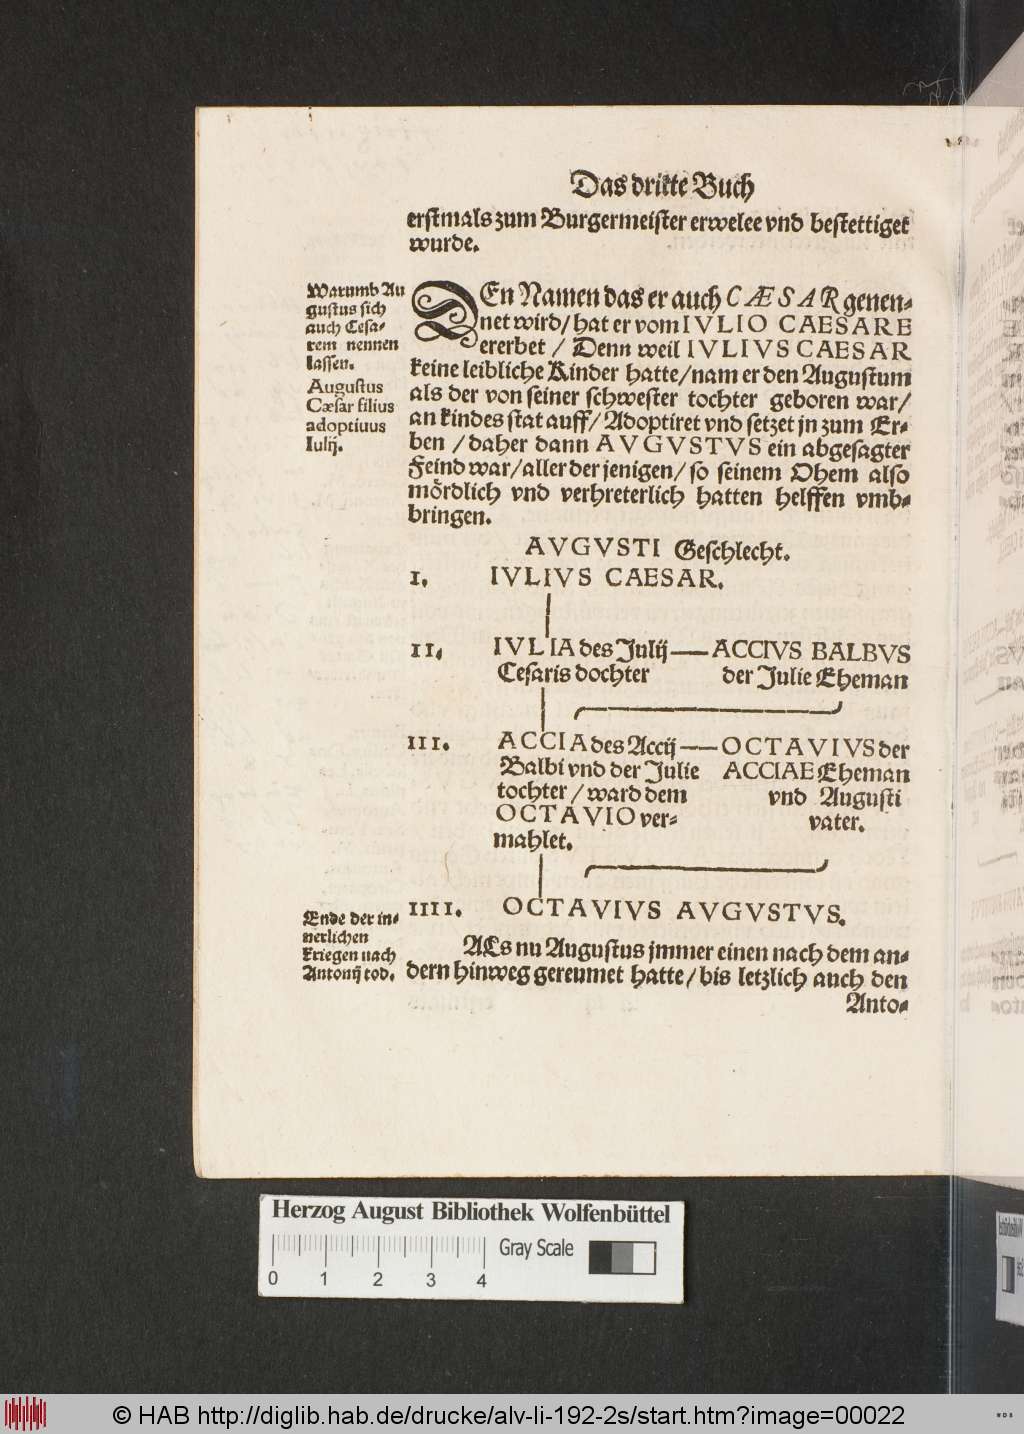 Das dritte Buch
erstmals zum Burgermeister erwelee vnd bestettiget
wurde.
Warumb Au
gustus sich
auch Cesa-
rem nennen
lassen.
Augustus
Cæsar filius
adoptiuus
Iulij.
DEn Namen das er auch CÆSAR genen-
net wird/ hat er vom IVLIO CAESARE
ererbet / Denn weil IVLIVS CAESAR
keine leibliche Kinder hatte/ nam er den Augustum
als der von seiner schwester tochter geboren war/
an kindes stat auff/ Adoptiret vnd setzet jn zum Er-
ben / daher dann AVGVSTVS ein abgesagter
Feind war/ aller der jenigen/ so seinem Ohem also
mördlich vnd verhreterlich hatten helffen vmb-
bringen.
AVGVSTI Geschlecht.
I. IVLIVS CAESAR.
II. IVLIA des Julij — ACCIVS BALBVS
Cesaris dochter der Julie Eheman
III. ACCIA des Accij — OCTAVIVS der
Balbi vnd der Julie ACCIAE Eheman
tochter / ward dem vnd Augusti
OCTAVIO ver- vater.
mahlet.
IIII. OCTAVIVS AVGVSTVS.
Ende der in-
nerlichen
kriegen nach
Antonij tod.
ALs nu Augustus jmmer einen nach dem an-
dern hinweg gereumet hatte/ bis letzlich auch den
Anto-
Herzog August Bibliothek Wolfenbüttel
Gray Scale
0 1 2 3 4
© HAB http://diglib.hab.de/drucke/alv-li-192-2s/start.htm?image=00022